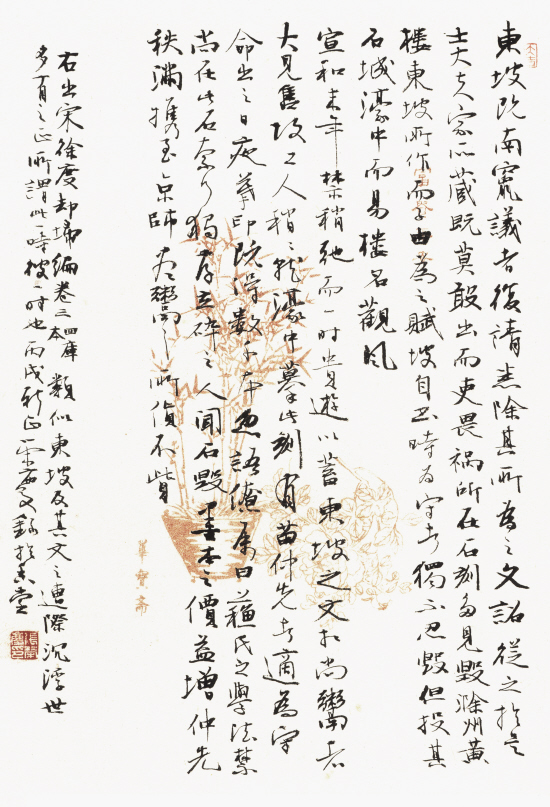 東坡既南竄議者復請悉除其所為之文詔從之於是
士大夫家所藏既莫敢出而吏畏禍所在石刻多見毀滁州黃
樓東坡所作而子由為之賦坡自書時為守者獨不忍毀但投其
石城濠中而易樓名觀風
宣和末年禁稍弛而一時貴遊以蓄東坡之文相尚鬻者
大見售故工人稍稍就濠中摹此刻有苗仲先者適為守
命出之日夜摹印既得數千本忽語僚屬曰蘇氏之學法禁
尚在此石奈何獨存立碎之人聞石毀墨本之價益增仲先
秩滿攜至京師盡鬻之所獲不貲
右出宋徐度却掃編卷三四庫本類似東坡及其文之遭際沉浮世
多有之正所謂此一時彼一時也丙戌新正錄於堂
華寶齋